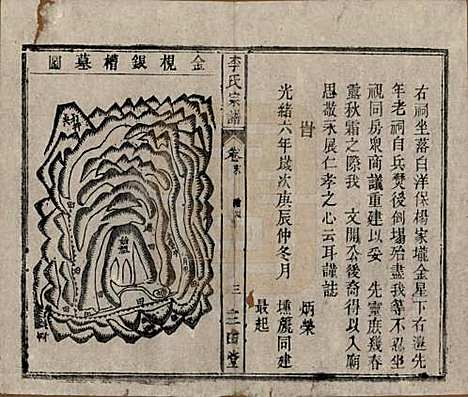 右祠坐落白洋保楊家壠金星下右邊先
年老祠自兵燹後倒塌殆盡我等不忍坐
視同房衆商議重建以妥　先靈庶幾春
露秋霜之際我　文開公後裔得以入廟
思敬永展仁孝之心云耳謹誌
峕
光緒六年歲次庚辰仲冬月
炳榮
壎篪同建
最起
李氏宗譜
卷末
三
三田堂
金梘銀槽墓圖